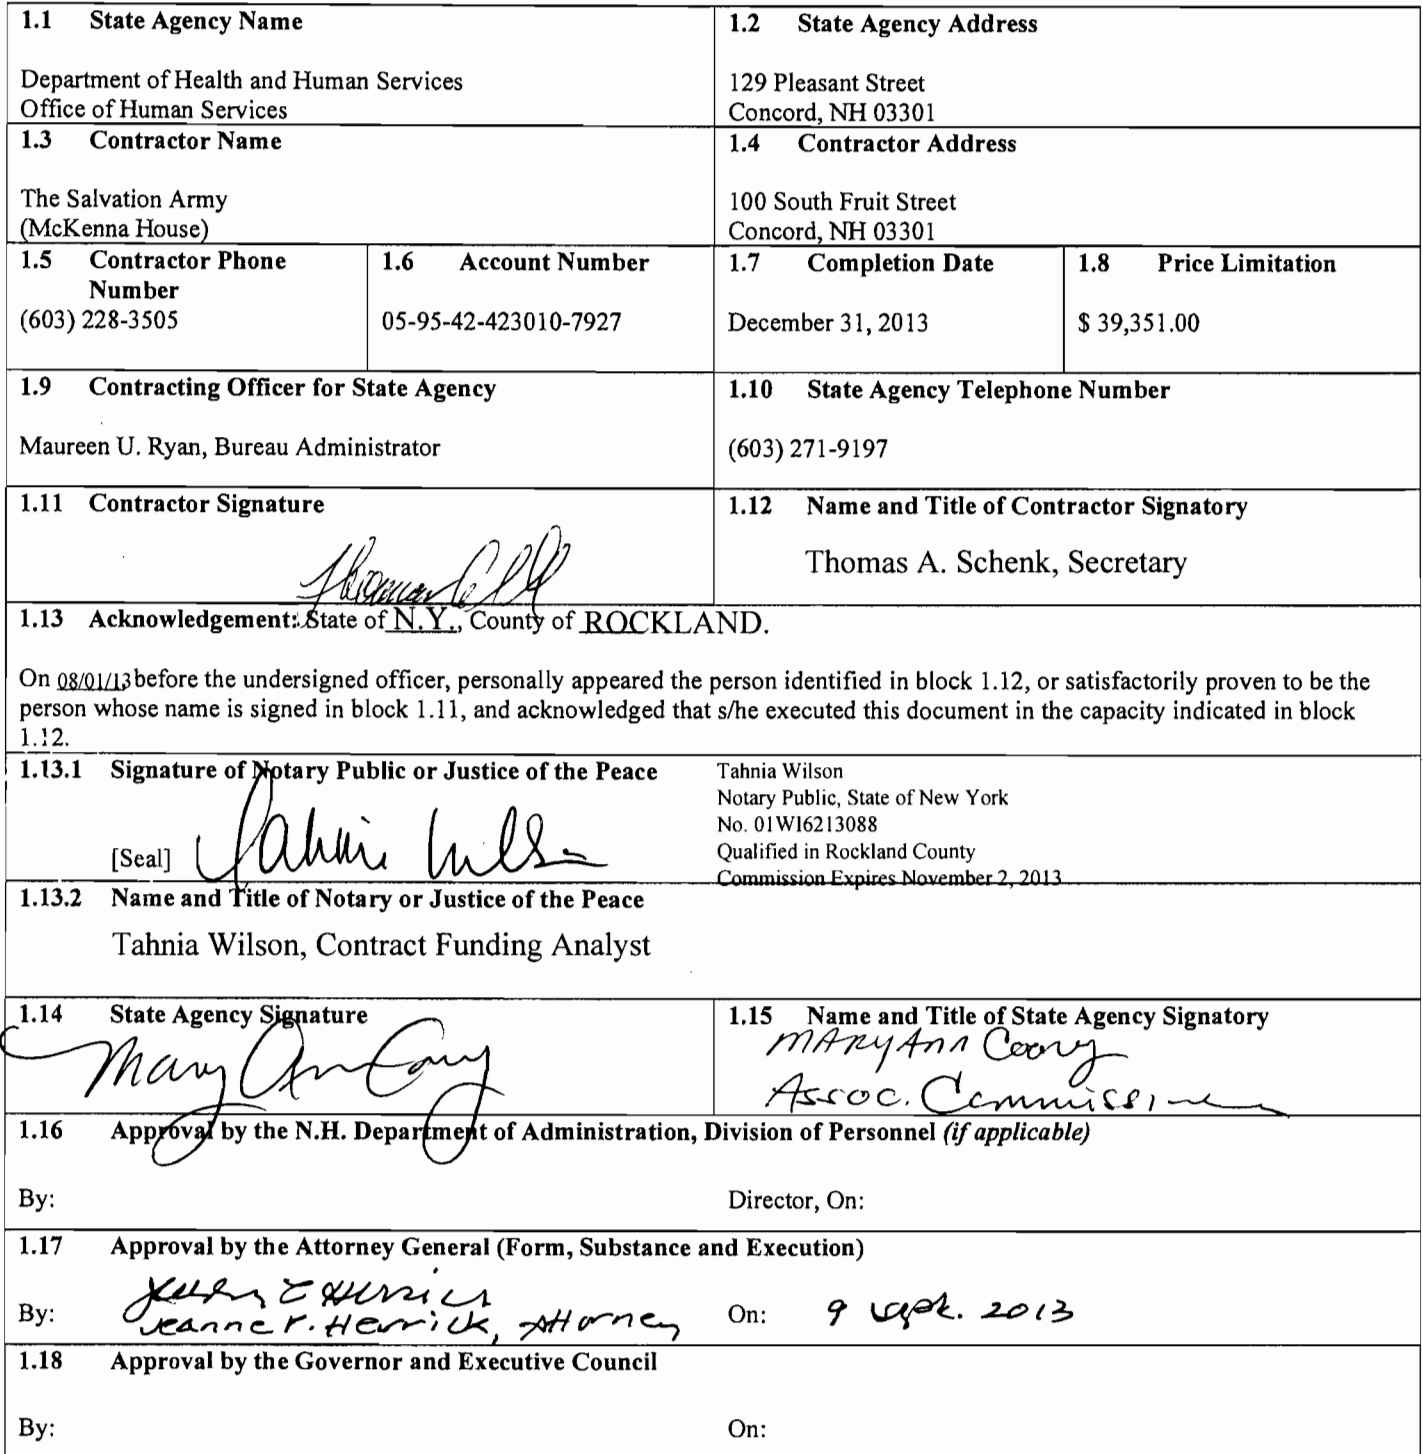 1.1 State Agency Name
Department of Health and Human Services
Office of Human Services
1.2 State Agency Address
129 Pleasant Street
Concord, NH 03301
1.3 Contractor Name
The Salvation Army
(McKenna House)
1.4 Contractor Address
100 South Fruit Street
Concord, NH 03301
1.5 Contractor Phone
Number
(603) 228-3505
1.6 Account Number
05-95-42-423010-7927
1.7 Completion Date
December 31, 2013
1.8 Price Limitation
$ 39,351.00
1.9 Contracting Officer for State Agency
Maureen U. Ryan, Bureau Administrator
1.10 State Agency Telephone Number
(603) 271-9197
1.11 Contractor Signature
1.12 Name and Title of Contractor Signatory
Thomas A. Schenk, Secretary
1.13 Acknowledgement: State of N.Y., County of ROCKLAND.
On 08/01/13 before the undersigned officer, personally appeared the person identified in block 1.12, or satisfactorily proven to be the
person whose name is signed in block 1.11, and acknowledged that s/he executed this document in the capacity indicated in block
1.12.
1.13.1 Signature of Notary Public or Justice of the Peace
[Seal] Tahnia Wilson
Tahnia Wilson
Notary Public, State of New York
No. 01WI6213088
Qualified in Rockland County
Commission Expires November 2, 2013
1.13.2 Name and Title of Notary or Justice of the Peace
Tahnia Wilson, Contract Funding Analyst
1.14 State Agency Signature
Mary Ann Cooney
1.15 Name and Title of State Agency Signatory
Mary Ann Cooney
Assoc. Commissioner
1.16 Approval by the N.H. Department of Administration, Division of Personnel (if applicable)
By:
Director, On:
1.17 Approval by the Attorney General (Form, Substance and Execution)
By: Jeanne P. Herrick, Attorney
On: 9 Sept. 2013
1.18 Approval by the Governor and Executive Council
By:
On: